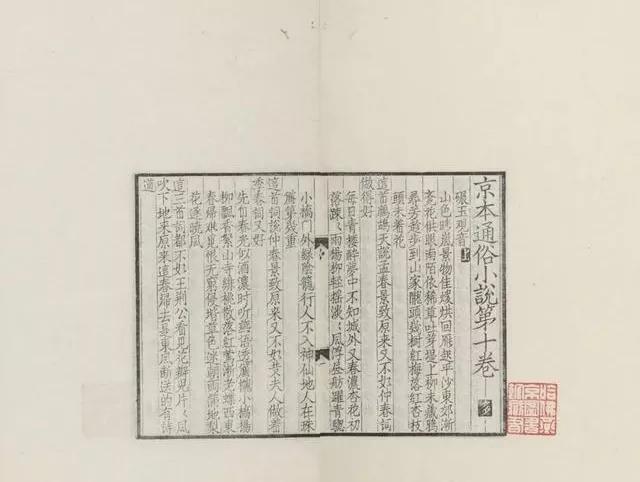 京本通俗小說第十卷
碾玉觀音上
山色晴嵐景物佳煖烘回雁起平沙東郊漸
覺花供眼南陌依稀草吐芽堤上柳未藏鴉
尋芳趁步到山家隴頭幾樹紅梅落紅杏枝
頭未着花
這首鷓鴣天說孟春景致原來又不如仲春詞
做得好
每日青樓醉夢中不知城外又春濃杏花初
落踈〻雨楊柳輕搖淡〻風浮畫舫躍青驄
小橋門外綠陰籠行人不入神仙地人在珠
簾第幾重
這首詞說仲春景致原來又不如黃夫人做着
季春詞又好
先自春光似酒濃時听燕語透簾櫳小橋楊
柳飄香絮山寺緋桃散落紅鶯漸老蝶西東
春歸难覓恨无窮侵堦草色迷朝雨滿地梨
花逐曉風
這三首詞都不如王荆公看見花瓣兒片〻風
吹下地來原來這春歸去是東風斷送的有詩
道